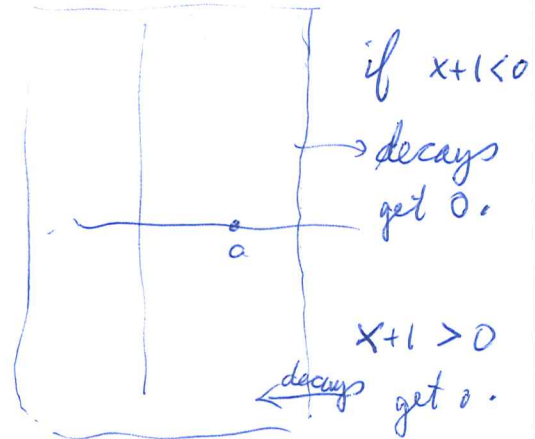 if x+1<0
decays
get 0.
a
x+1 >0
decays
get 0.